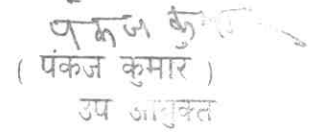 पंकज कुमार
( पंकज कुमार )
उप आयुक्त